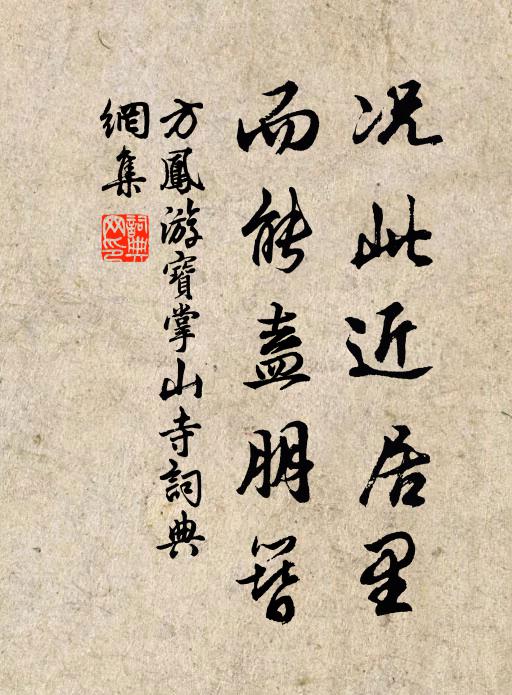 况此近居里
而能盍朋簪
方鳳游寶掌山寺詞典
網集
詞典網印